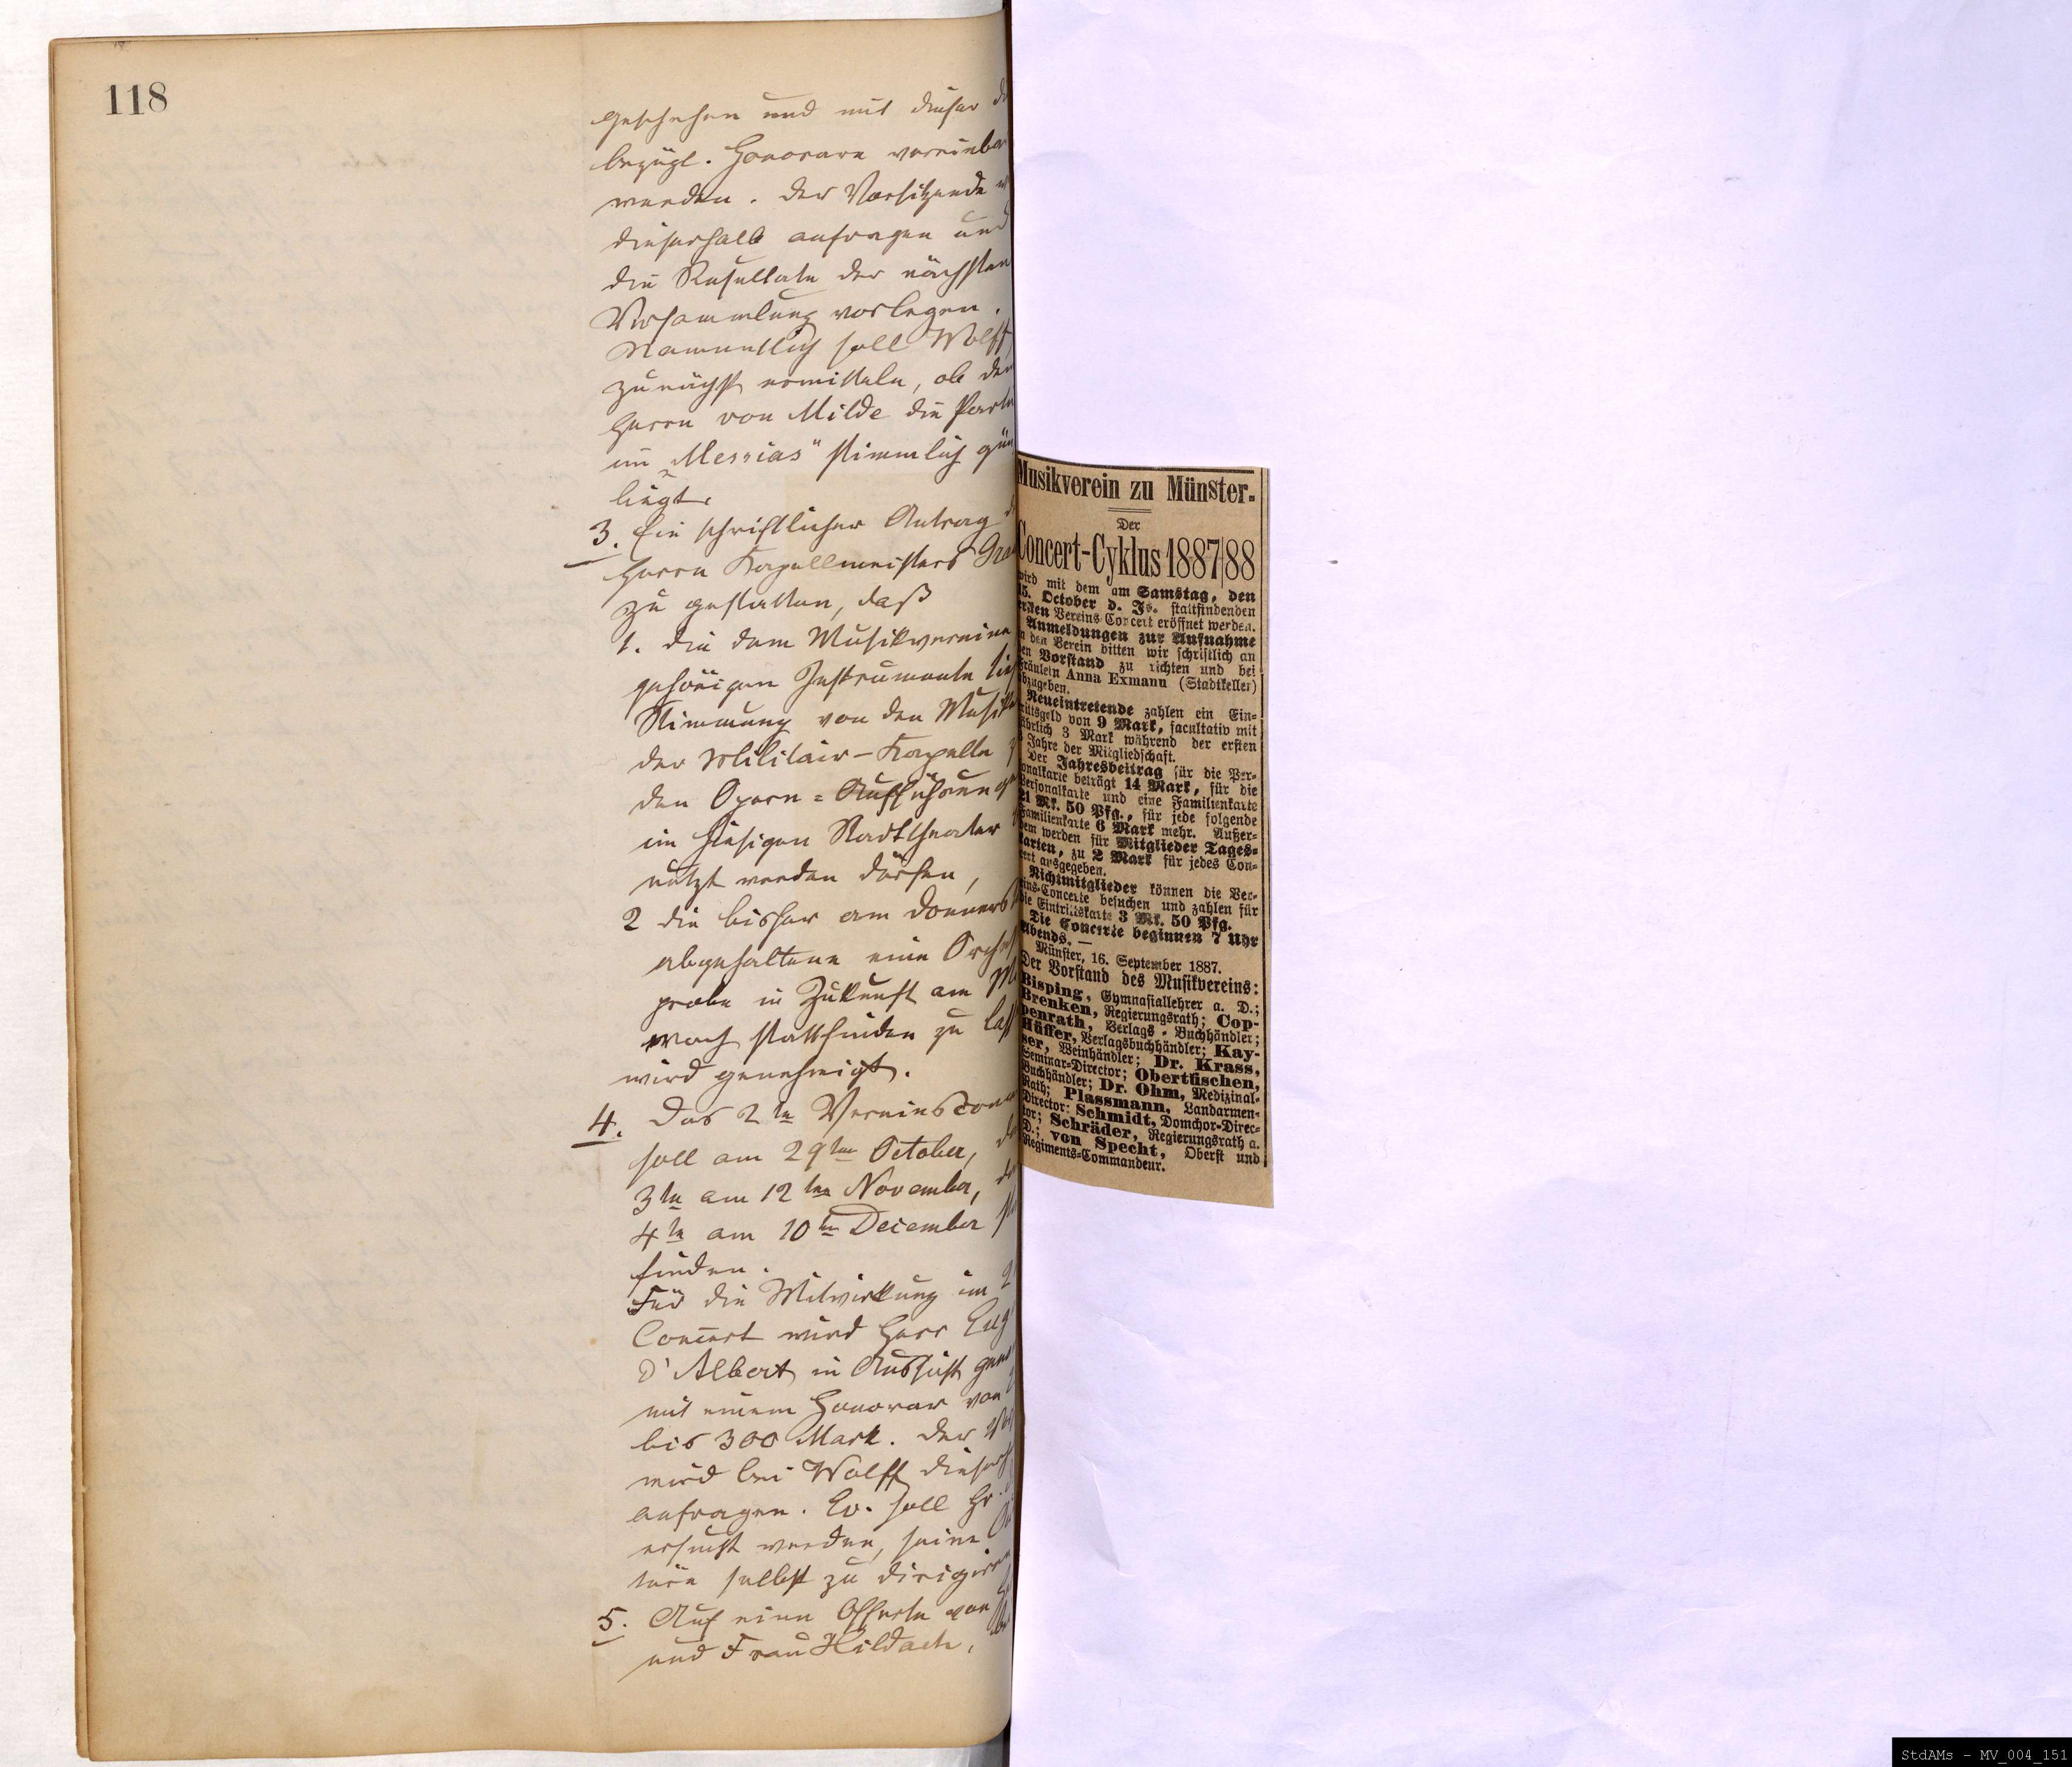 118
geschehen und mit dieser
bezügl. Honorare vereinbar
werden. Der Vorsitzende
dieserhalb anfragen und
die Resultate der nächsten
Versammlung vorlegen.
Namentlich soll Wolff
zunächst ermitteln, ob dem
Herrn von Milde die Parti
im „Messias" stimmlich gün
liegt.
3. Ein schriftlicher Antrag d
Herrn Kapellmeisters Gra
zu gestatten, daß
1. die dem Musikvereine
gehörigen Instrumente tie
Stimmung von den Musik
der Militair-Kapelle z
den Opern-Aufführung
im hiesigen Stadttheater
nutzt werden dürfen,
2 die bisher am Donners
abgehaltene eine Orches
probe in Zukunft am Mi
woch stattfinden zu lass
wird genehmigt.
4. Das 2te Vereinsconc
soll am 29ten October, da
3te am 12ten November, da
4te am 10ten December sta
finden.
Für die Mitwirkung im 2
Concert wird Herr Eug
D'Albert in Aussicht gen
mit einem Honorar von
bis 300 Mark. Der Vo
wird bei Wolff dieserh
anfragen. Ev. soll Hr.
ersucht werden, seine Ou
türe selbst zu dirigiren
5. Auf eine Offerte von
und Frau Hildach,
Musikverein zu Münster.
Der
Concert-Cyklus 1887/88
wird mit dem am Samstag, den
15. October d. Js. stattfindenden
ersten Vereins-Concert eröffnet werden.
Anmeldungen zur Aufnahme
n den Verein bitten wir schriftlich an
en Vorstand zu richten und bei
Fräulein Anna Exmann (Stadtkeller)
bzugeben.
Neueintretende zahlen ein Ein-
rittsgeld von 9 Mark, facultativ mit
ährlich 3 Mark während der ersten
3 Jahre der Mitgliedschaft.
Der Jahresbeitrag für die Per-
onalkarte beträgt 14 Mark, für die
Personalkarte und eine Familienkarte
21 Mk. 50 Pfg., für jede folgende
Familienkarte 6 Mark mehr. Außer-
dem werden für Mitglieder Tages-
karten, zu 2 Mark für jedes Con-
cert ausgegeben.
Nichtmitglieder können die Ver-
eins-Concerte besuchen und zahlen für
die Eintrittskarte 3 Mk. 50 Pfg.
Die Concerte beginnen 7 Uhr
Abends. —
Münster, 16. September 1887.
Der Vorstand des Musikvereins:
Bisping, Gymnasiallehrer a. D.;
Brenken, Regierungsrath; Cop-
penrath, Verlags-Buchhändler;
Hüffer, Verlagsbuchhändler; Kay-
ser, Weinhändler; Dr. Krass,
Seminar-Director; Obertüschen,
Buchhändler; Dr. Ohm, Medizinal-
Rath; Plassmann, Landarmen-
Director; Schmidt, Domchor-Direc-
tor; Schräder, Regierungsrath a.
D.; von Specht, Oberst und
Regiments-Commandeur.
StdAMs - MV_004_151